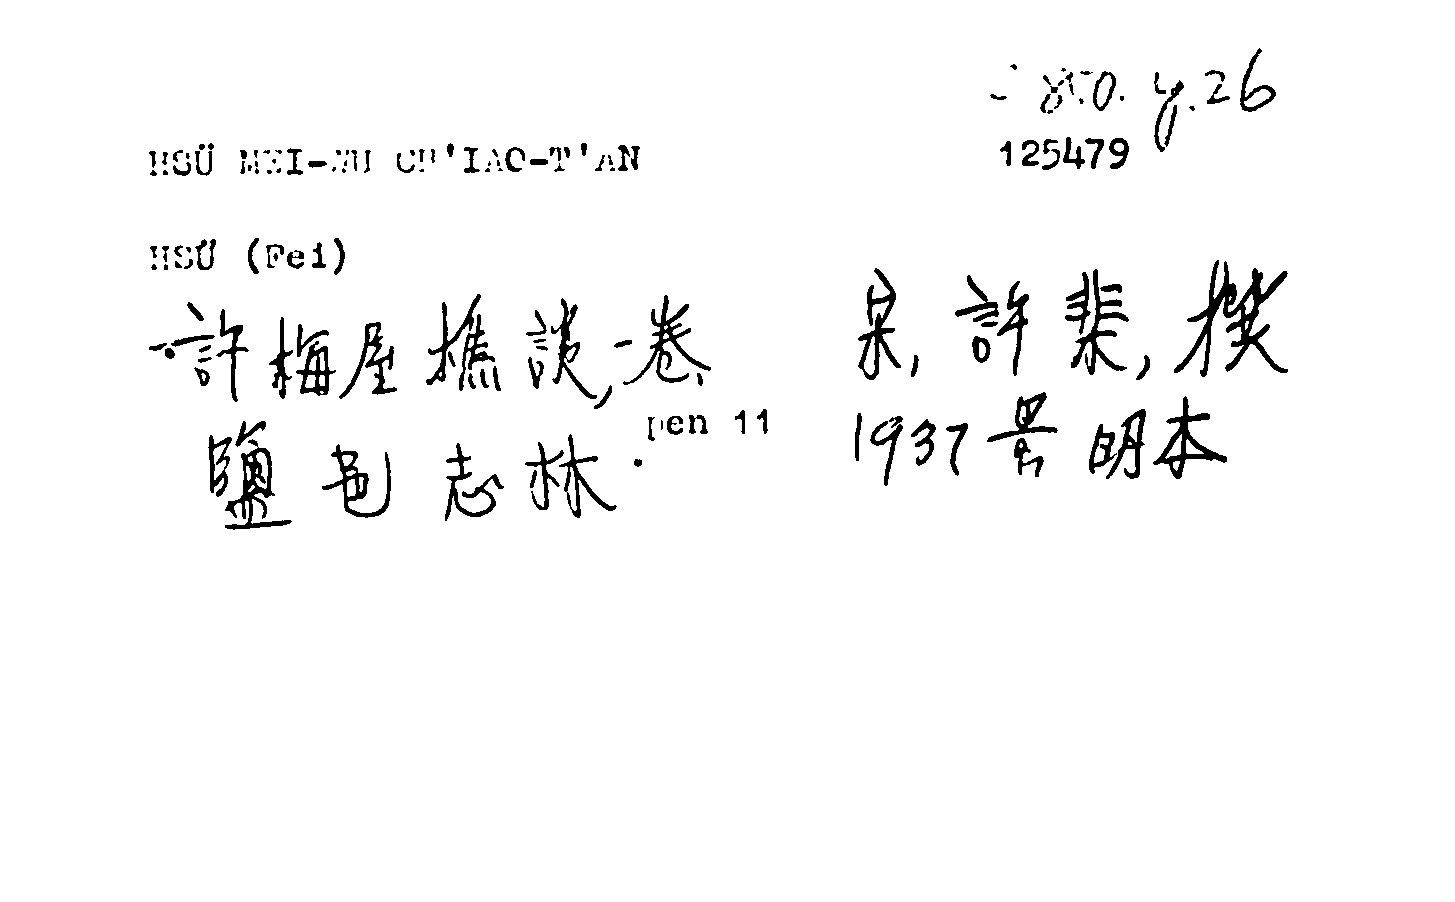 850. y.26
125479
HSÜ MEI-WU CH'IAO-T'AN
HSÜ (Fei)
許梅屋樵談,一卷, 宋,許棐,撰
pen 11
鹽邑志林. 1937景明本